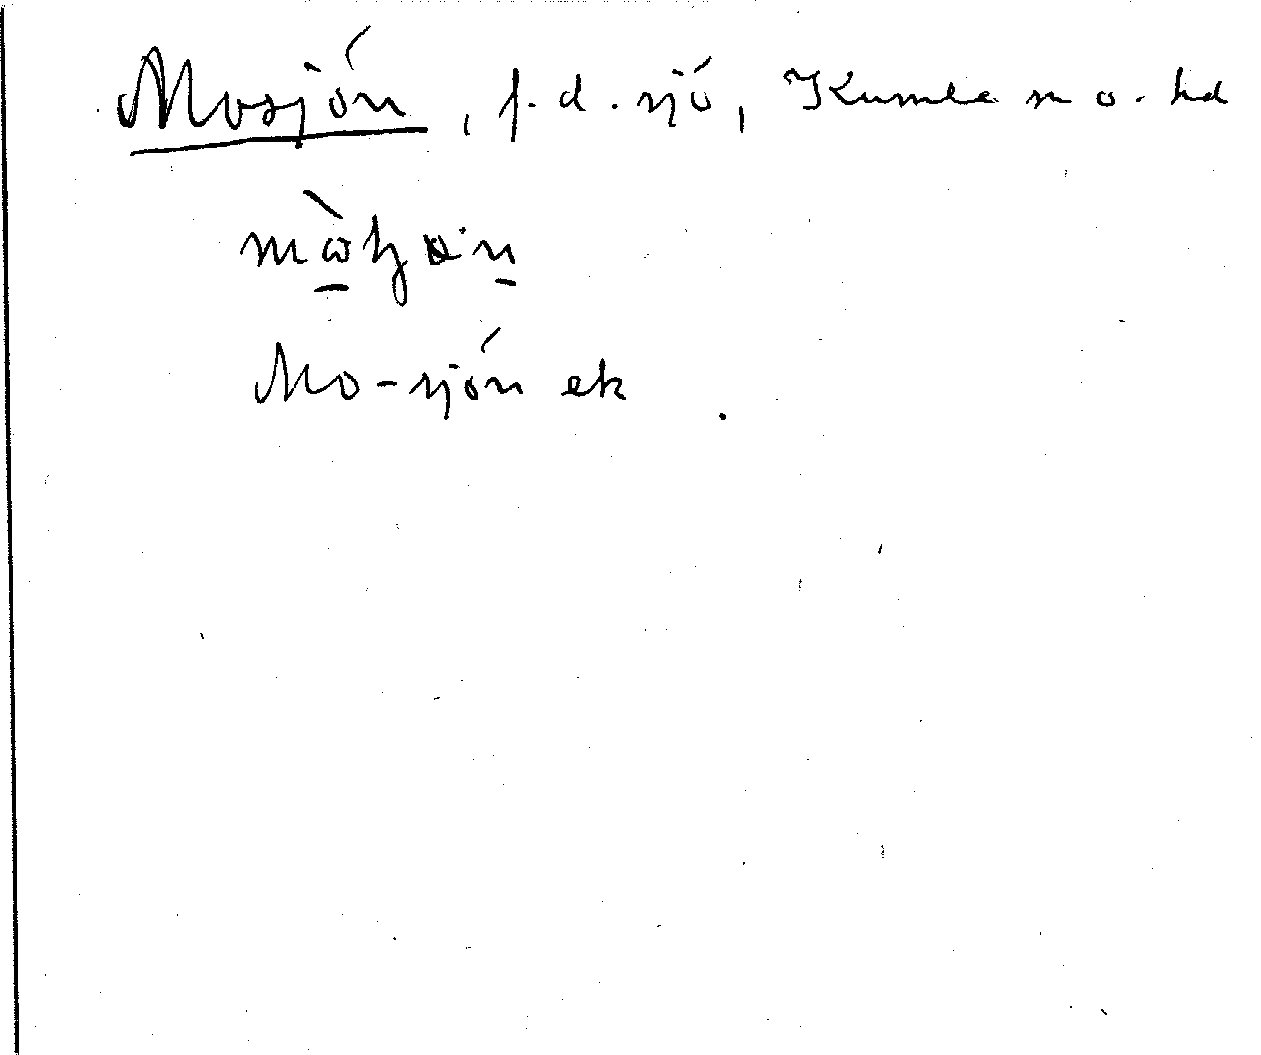 Mosjön, f.d. sjö, Kumla sn o. hd
Mo-sjön ek